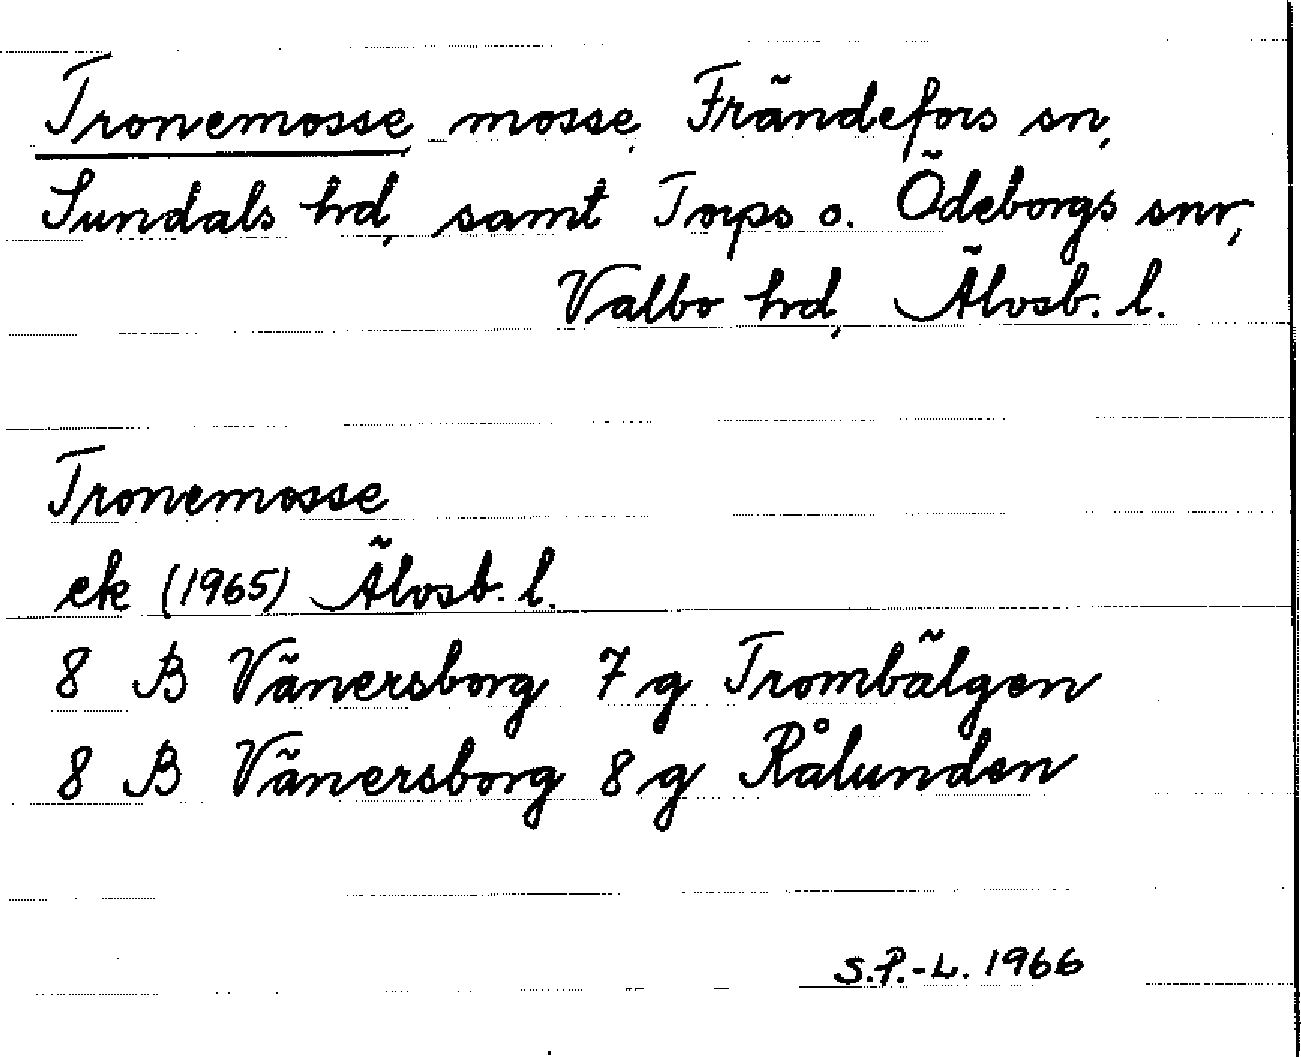 Tronemosse, mosse, Frändefors sn,
Sundals hd, samt Torps o. Ödeborgs snr,
Valbo hd, Älvsb. l.
Tronemosse
ek (1965) Älvsb. l.
8 B Vänersborg 7 g Trombälgen
8 B Vänersborg 8 g Rålunden
S.P.-L. 1966